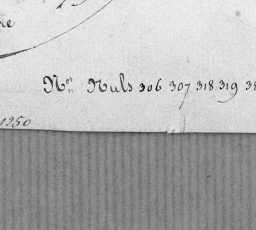 Nos Nuls 306 307 318 319
1250